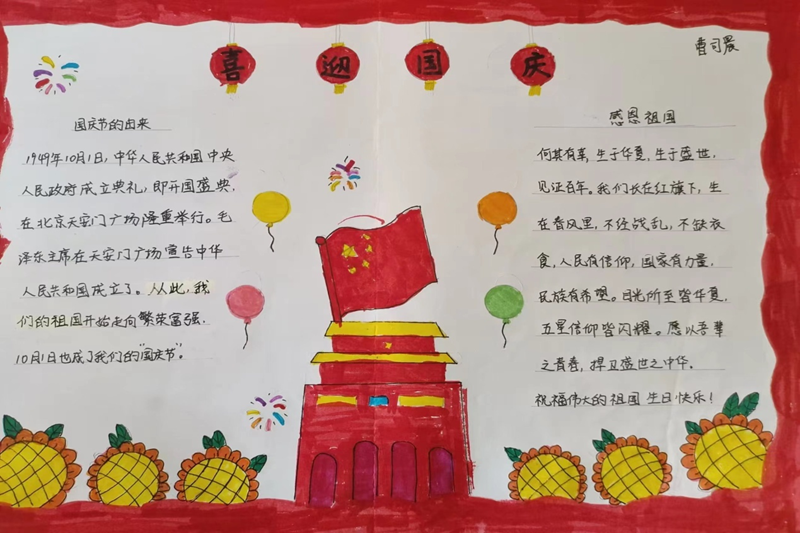 喜迎国庆
曹司晨
国庆节的由来
1949年10月1日，中华人民共和国中央
人民政府成立典礼，即开国盛典，
在北京天安门广场隆重举行。毛
泽东主席在天安门广场宣告中华
人民共和国成立了。从此，我
们的祖国开始走向繁荣富强.
10月1日也成了我们的"国庆节"。
感恩祖国
何其有幸，生于华夏，生于盛世，
见证百年。我们长在红旗下，生
在春风里，不经战乱，不缺衣
食，人民有信仰，国家有力量，
民族有希望。目光所至皆华夏，
五星信仰皆闪耀。愿以吾辈
之青春，捍卫盛世之中华。
祝福伟大的祖国生日快乐！